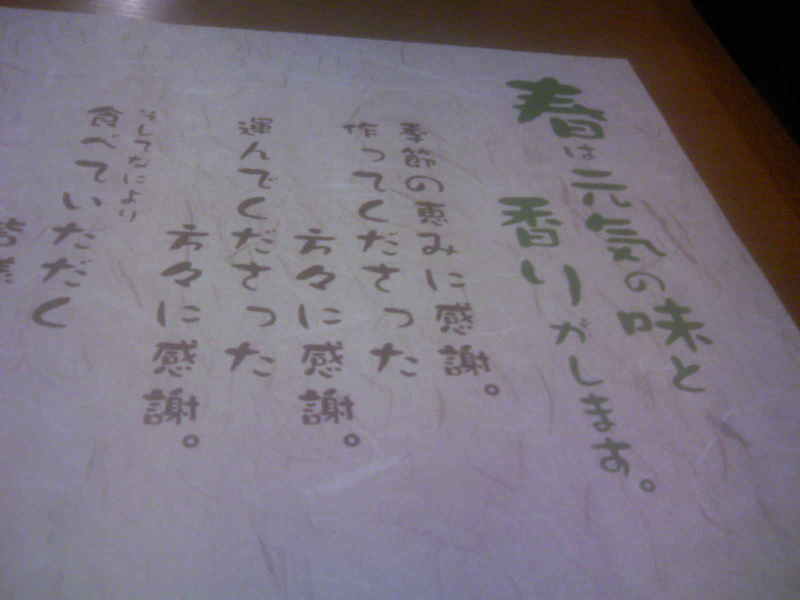 春は元気の味と
香りがします。
季節の恵みに感謝。
作ってくださった
方々に感謝。
運んでくださった
方々に感謝。
そしてなにより
食べていただく
皆様